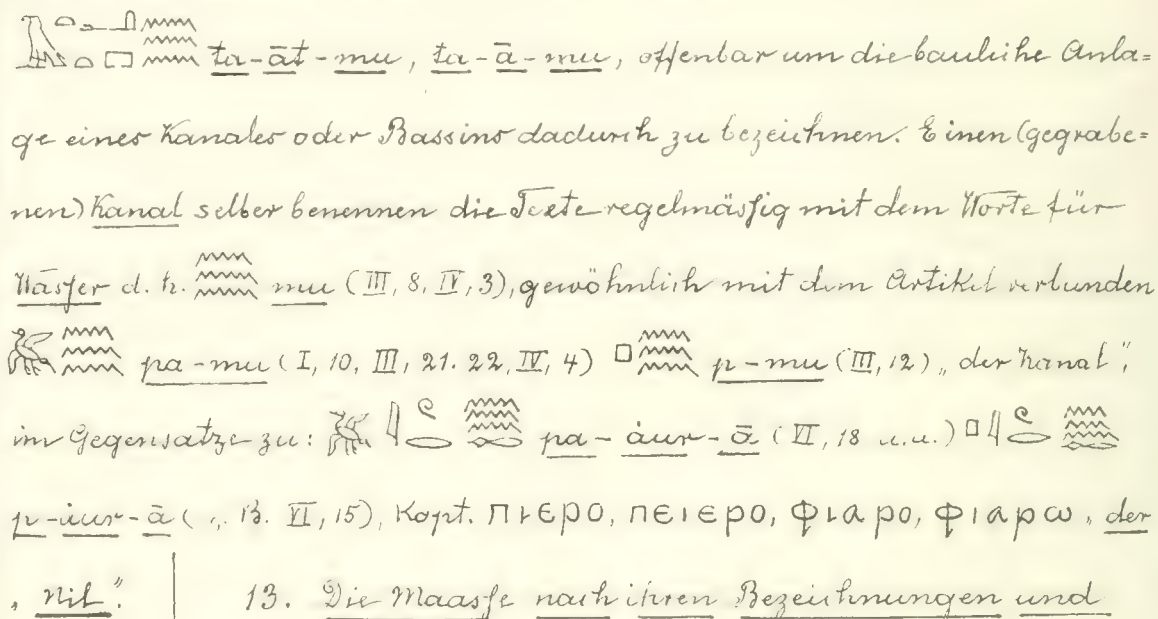 ta-āt-mu, ta-ā-mu, offenbar um die bauliche Anla=
ge eines Kanales oder Bassins dadurch zu bezeichnen. Einen (gegrabe=
nen) Kanal selber benennen die Texte regelmässig mit dem Worte für
Wasser d. h. 𓈗 mu (III, 8. IV, 3), gewöhnlich mit dem Artikel verbunden
𓅮𓈗 pa-mu (I, 10, III, 21. 22, IV, 4) 𓊪𓈗 p-mu (III, 12) „der Kanal",
im Gegensatze zu: pa-áur-ā (VI, 18 u.u.)
p-áur-ā (. B. VI, 15), Kopt. ⲡⲓⲉⲣⲟ, ⲡⲉⲓⲉⲣⲟ, ⲫⲓⲁⲣⲟ, ⲫⲓⲁⲣⲱ, der
„Nil". 13. Die Maasse nach ihren Bezeichnungen und